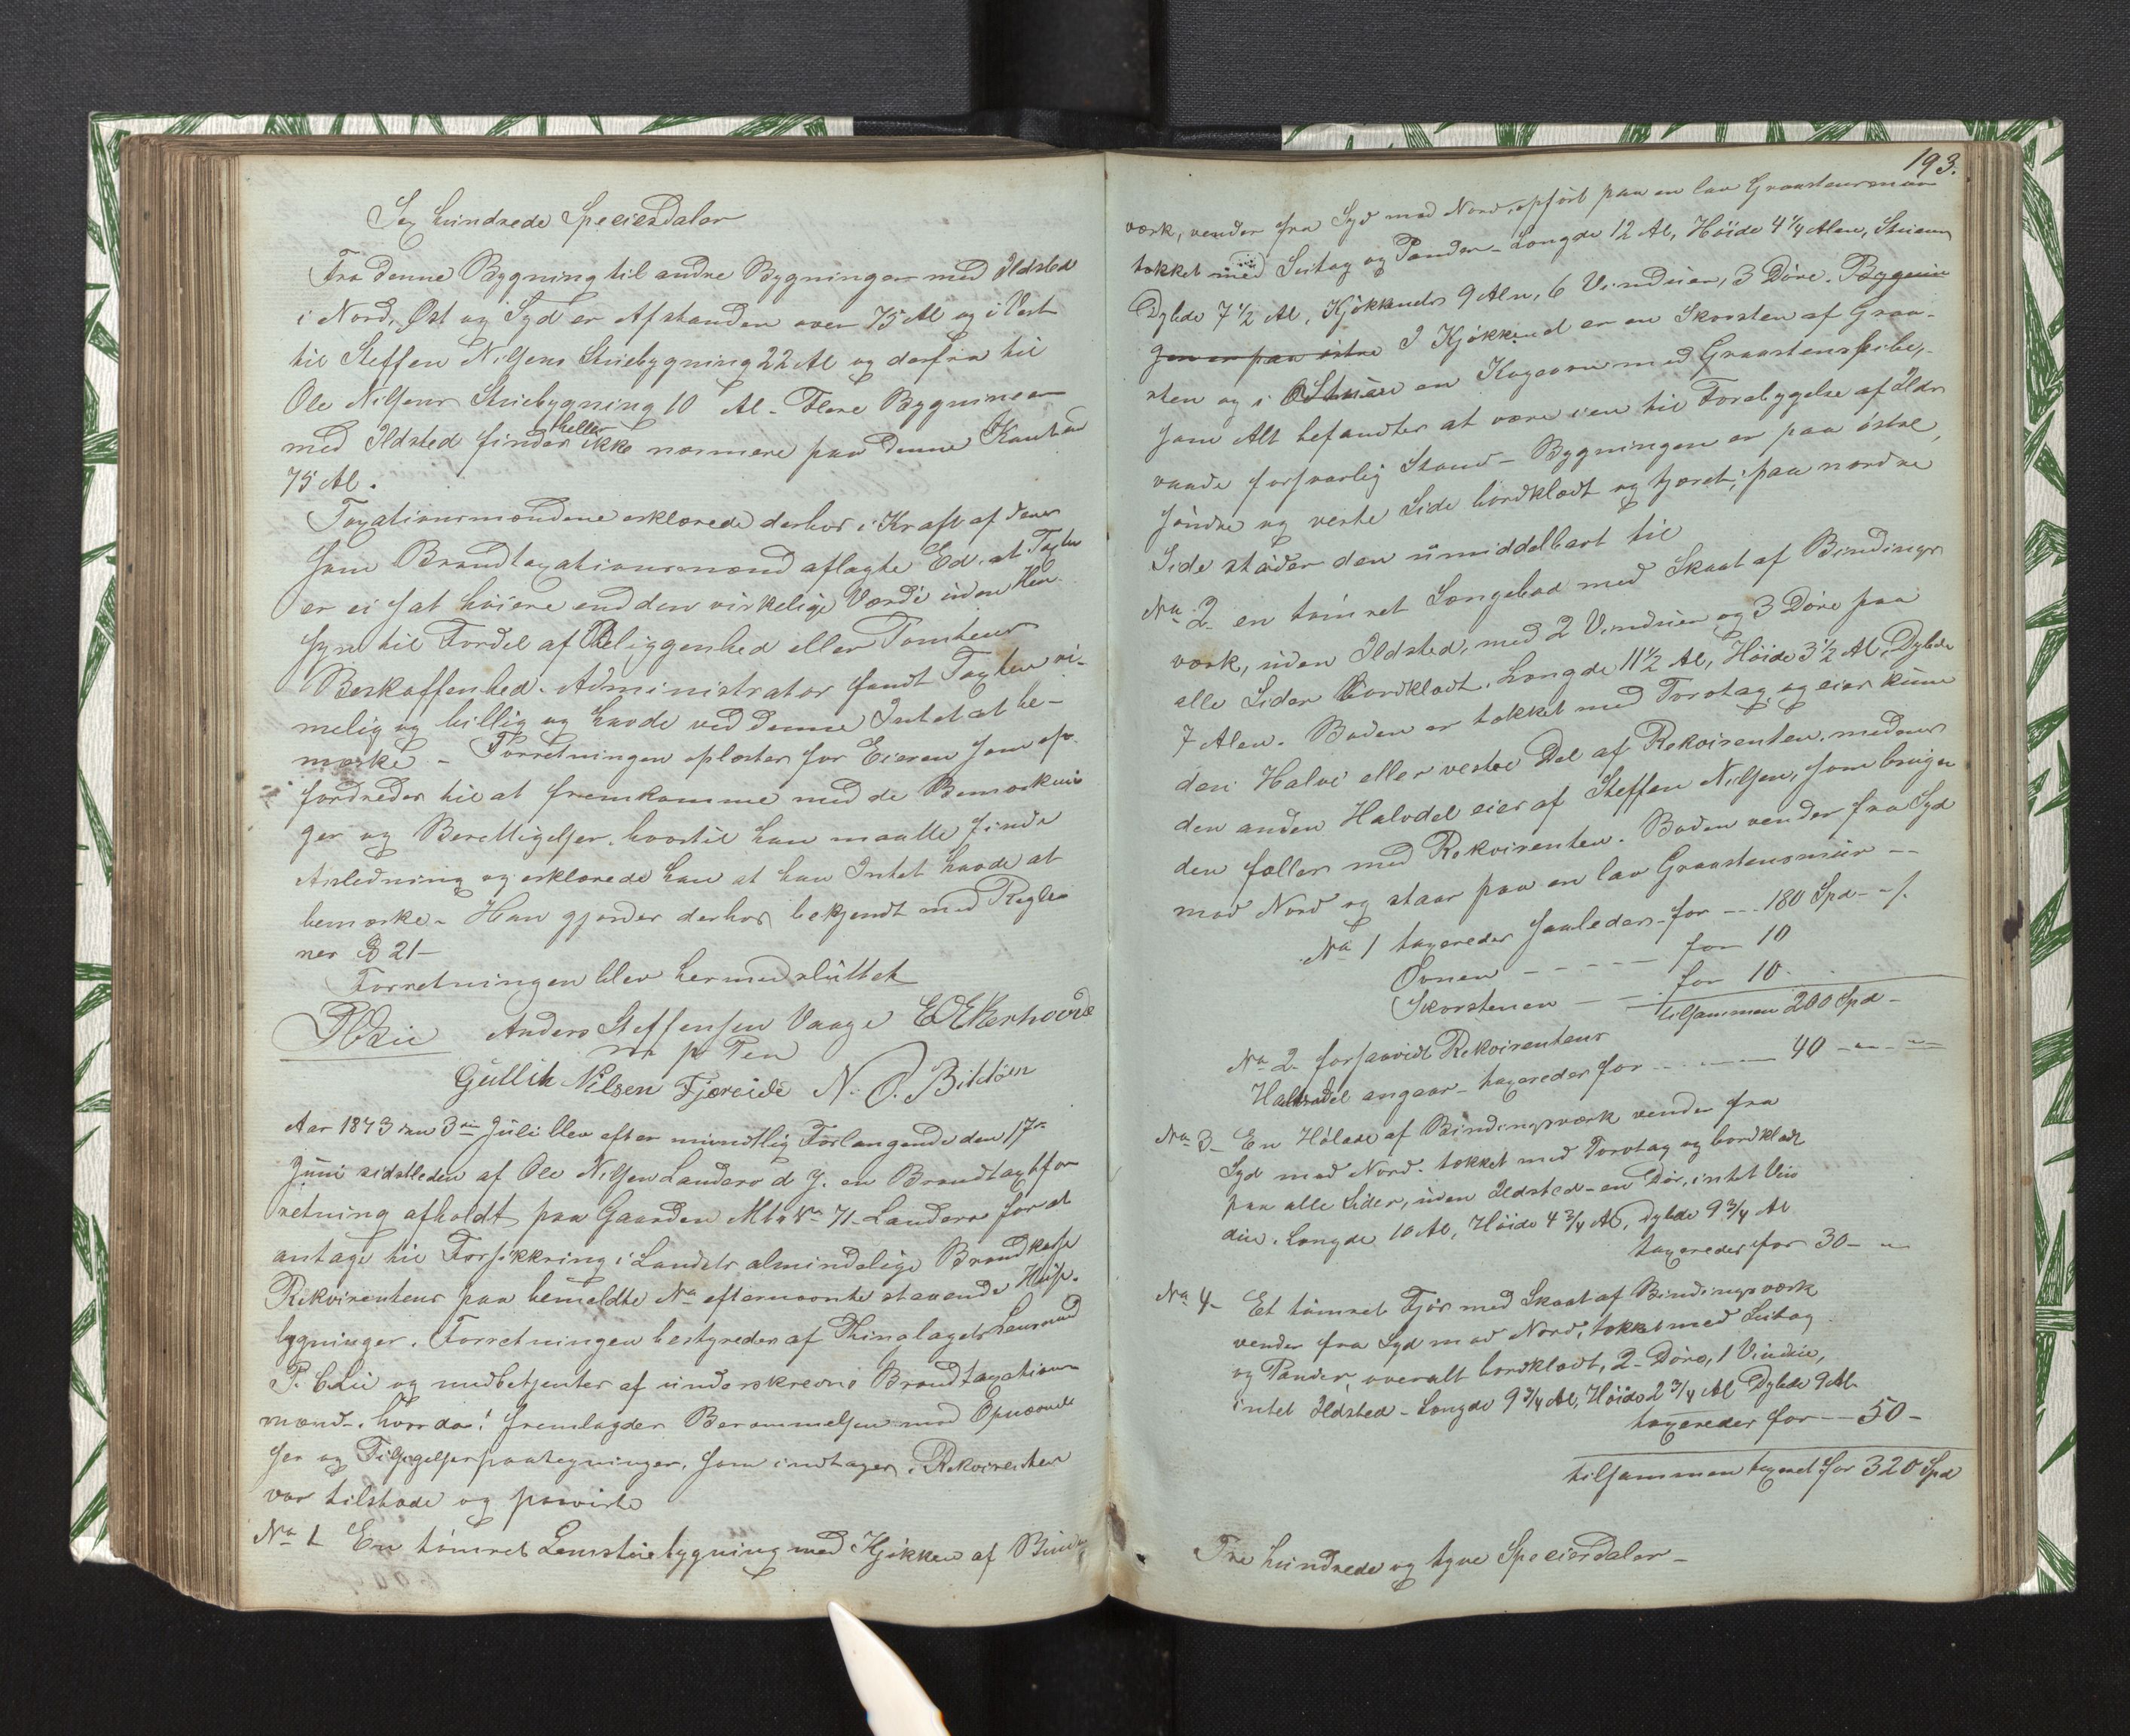 Sex hundrede Speciesdaler
Fra denne Bygning til andre Bygninger med Ildsted
i Nord, Øst og Syd er Afstanden over 75 Al og i Vest
til Steffen Nilsens Stuebygning 22 Al og derfra til
Ole Nilsens Stuebygning 10 Al. Flere Bygninger
med Ildsted findes heller ikke nærmere paa denne Kant end
75 Al.
Taxationsmændene erklærede derhos i Kraft af deres
som Brandtaxationsmænd aflagte Ed, at Taxten
er ei sat høiere end den virkelige Værdi uden Hen-
syn til Fordel af Beliggenhed eller Tomtens
Beskaffenhed. Administrator fandt Taxten ri-
melig og billig og havde ved denne Intet at be-
mærke. - Forretningen oplæstes for Eieren som op-
fordredes til at fremkomme med de Bemærknin
ger og Berettigelser, hvortil han maatte finde
Anledning og erklærede han at han Intet havde at
bemærke. Han gjordes derhos bekjendt med Regler
nes § 21-
Forretningen blev hermed sluttet
PCLie Anders Steffensen Vaage E O Ekerhovde
m p Pen
Gullik Nilsen Fjæreide N. O. Bildöen
Aar 1873 den 3die Juli blev efter mundtlig Forlangende den 17de
Juni sidstleden af Ole Nilsen Landero d y. en Brandtaxtfor
retning afholdt paa Gaarden Mtr No 71 Landero for at
antage til Forsikkring i Landets almindelige Brandkasse
Rekvirentens paa bemeldte No efternævnte staaende Huus-
bygninger. Forretningen bestyredes af Thinglagets Lensmand
P. C Lie og medbetjentes af underskrevne Brandtaxations
mænd. hvorda! fremlagdes Berammelsen med Opnævnel
ser og Tilsigelsespaategninger, som indtages. Rekvirenten
var tilstede og paaviste
No 1 En tømret Lemstuebygning med Kjøkken af Bindings
193.
værk, vender fra Syd mod Nord, opført paa en lav Graastensmuur
tækket med Sutag og Pander - Længde 12 Al, Høide 4 1/4 Alen, Stuens
Dybde 7 1/2 Al, Kjøkkenets 9 Aln, 6 Vinduer, 3 Døre. Bygnin
gen er paa østre I Kjøkkenet er en Skorsten af Graa-
sten og i Stuen en Kogeovn med Graastenspibe,
som Alt befandtes at være i en til Forebyggelse af Ilds
vaade forsvarlig Stand - Bygningen er paa østre,
søndre og vestre Side bordklædt og tjæret; paa nordre
Side støder den umiddelbart til
No 2 en tømret Sængebod med Skaat af Bindings
værk, uden Ildsted, med 2 Vinduer og 3 Døre paa
alle Sider bordklædt. Længde 11 1/2 Al, Høide 3 1/2 Al, Dybde
7 Alen. Boden er tækket med Torvtag, og eies kun
den Halve eller vestre Del af Rekvirenten, medens
den anden Halvdel eies af Steffen Nilsen, som bruger
den fælles med Rekvirenten. Boden vender fra Syd
mod Nord og staar paa en lav Graastensmuur --
No 1 taxeredes saaledes for --- 180 Spd - -
Ovnen - - - - for 10
Skorstenen - - for 10
tilsammen 200 Spd -
No 2 forsaavidt Rekvirentens
Halvdel angaar taxeredes for - - - 40 - " - "
No 3 - En Hølade af Bindingsværk vender fra
Syd mod Nord, tækket med Torvtag og bordklædt
paa alle Sider, uden Ildsted - en Dør, intet Vin
due. Længde 10 Al, Høide 4 3/4 Al, Dybde 9 3/4 Al
taxeredes for 30 - "
No 4 - Et tømret Fjøs med Skaat af Bindingsværk
vender fra Syd mod Nord, tækket med Sutag
og Pander, overalt bordklædt, 2 Døre, 1 Vindue,
intet Ildsted - Længde 9 3/4 Al, Høide 2 3/4 Al Dybde 9 Al
taxeredes for --- 50 -
tilsammen taxeret for 320 Spd
Tre hundrede og tyve Speciesdaler -